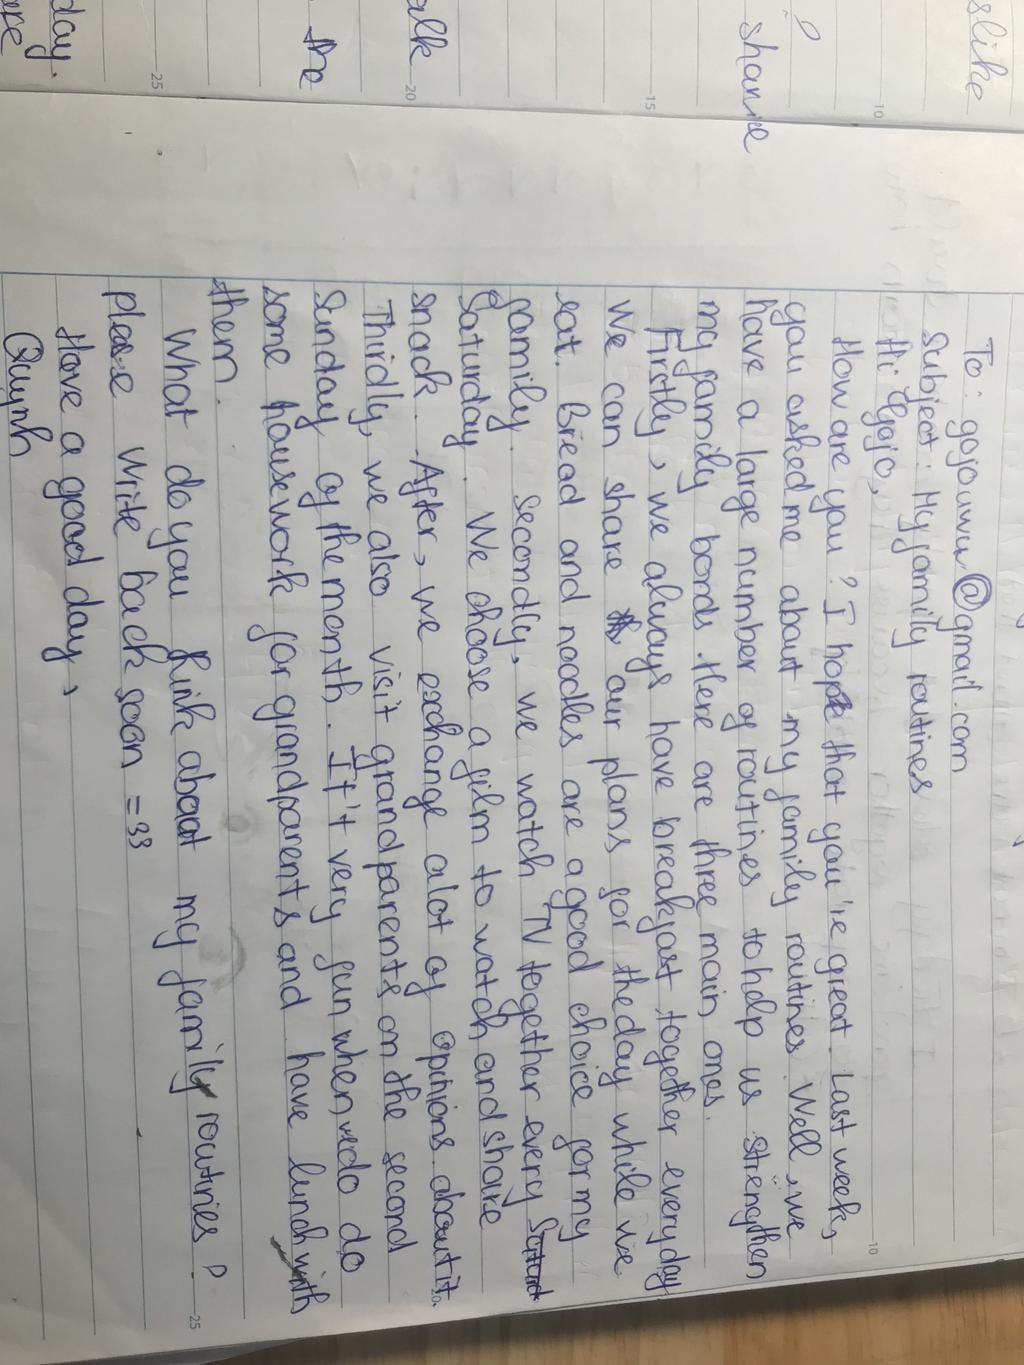 slike
share
alk
the
day.
are
To: gojouwu@gmail.com
Subject: My family routines
Hi Gojo,
How are you? I hope that you're great. Last week,
you asked me about my family routines. Well, we
have a large number of routines to help us strengthen
my family bonds. Here are three main ones.
Firstly, we always have breakfast together everyday.
We can share our plans for the day while we
eat. Bread and noodles are a good choice for my
family. Secondly, we watch TV together every
Saturday. We choose a film to watch and share
snack. After, we exchange alot of opinions about it.
Thirdly, we also visit grandparents on the second
Sunday of the month. It't very fun when we do do
some housework for grandparents and have lunch with
them.
What do you think about my family routines?
please write back soon =33
Have a good day,
Quynh